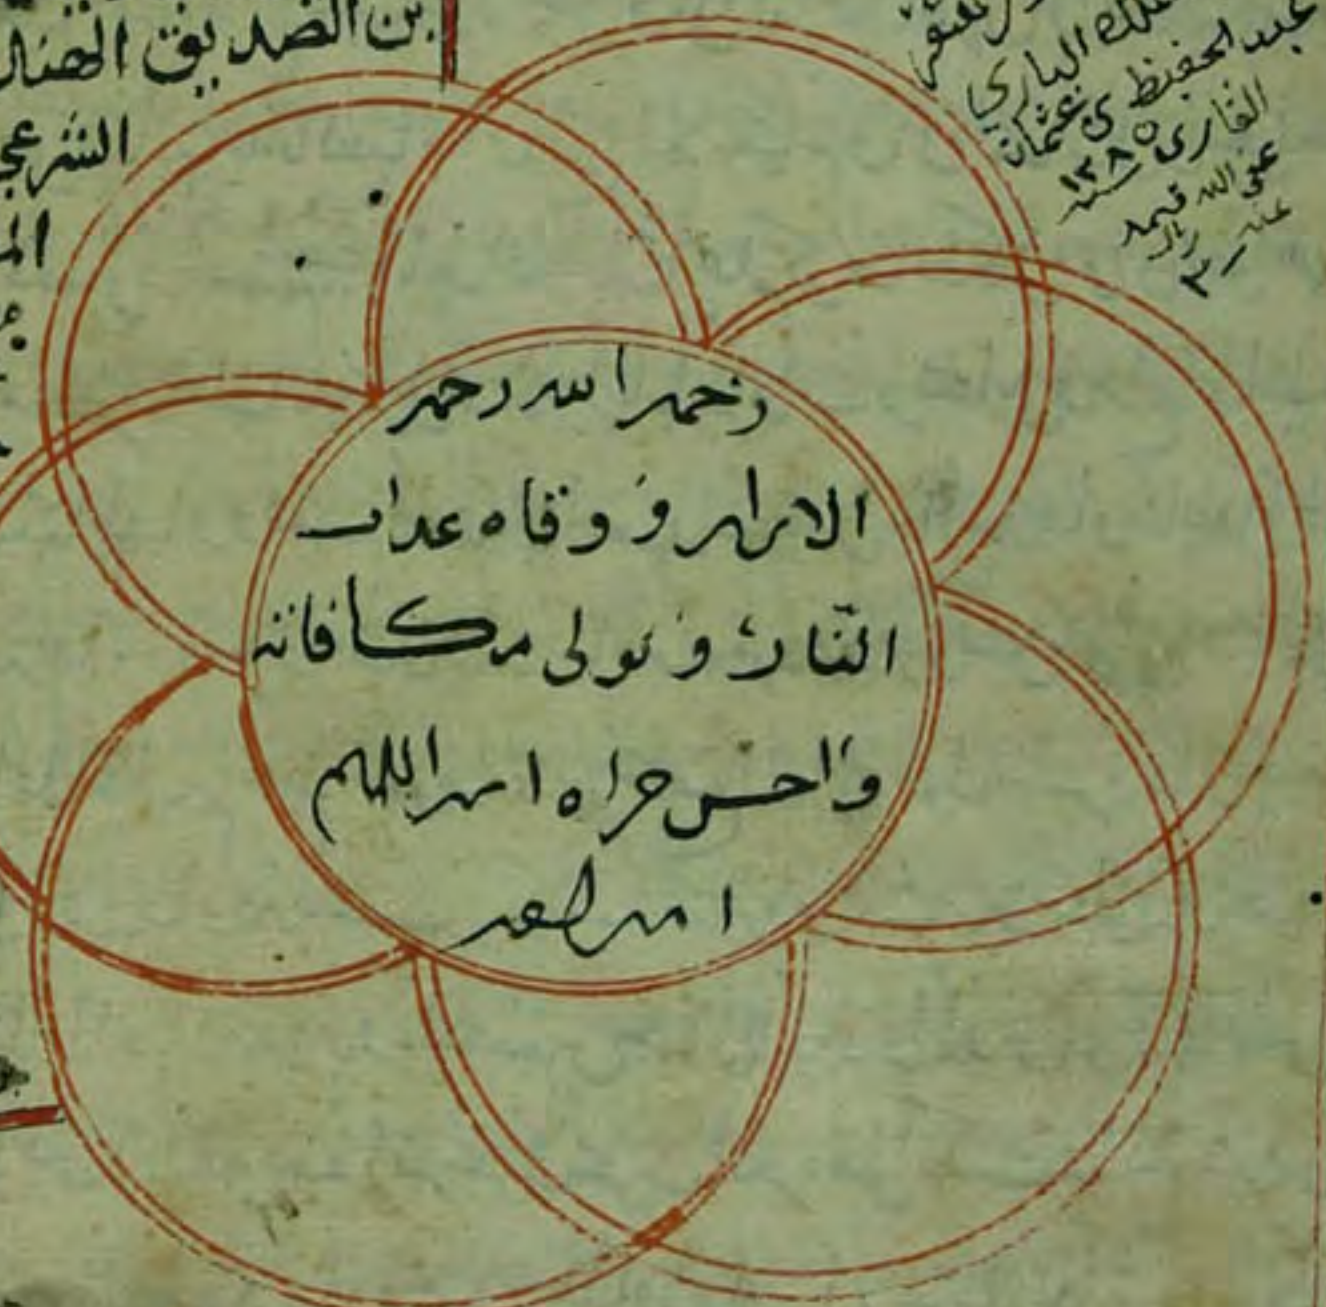 بن الصديق الهتار
الشرعي
الملك الباري
عبد الحفيظ بن عثمان
القاري سنة ١٣٨٠
عفى الله
عنه
رحمه الله رحمه
الابرار ووقاه عذاب
النار وتولى مكافاته
واحسن جزاه امين اللهم
امين